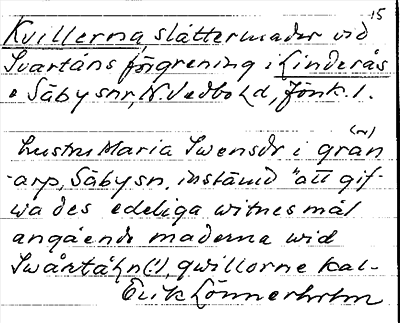 15
Kvillerna, slåttermader vid
Svartåns förgrening i Linderås
o Säby snr, N. Vedbo hd, Jönk. l.
hustru Maria Swensdr i grän(n)
arp, Säby sn. instämd "att gif-
wa des edeliga witnesmål
angående maderna wid
Swårtåhn(!), qwillorne kal-
Erik Lönnerholm